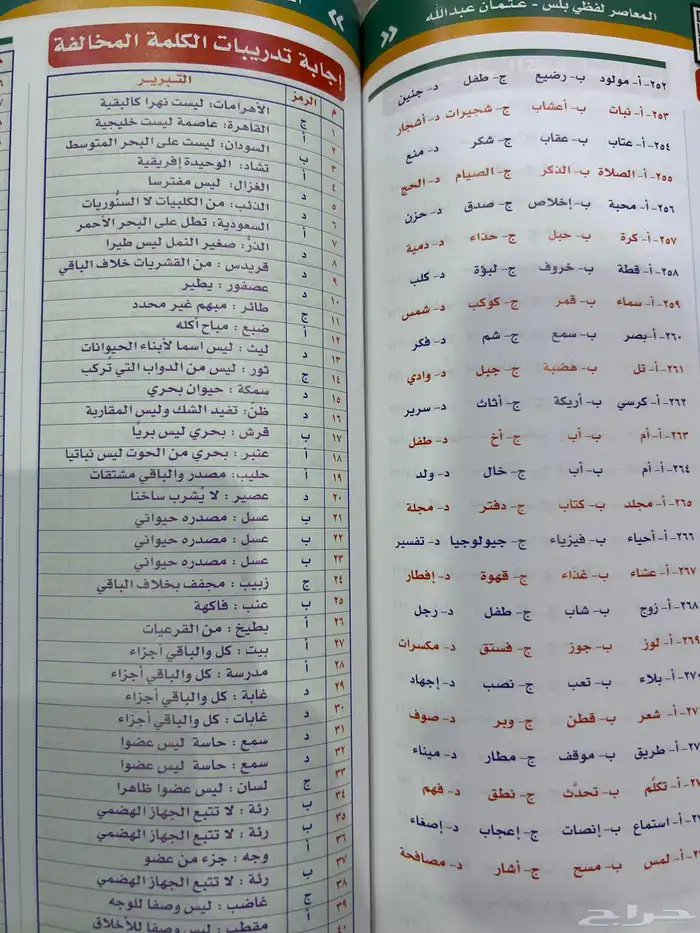 المعاصر لفظي بلس - عثمان عبدالله
٢٥٢- أ- مولود ب- رضيع ج- طفل د- جنين
٢٥٣- أ- نبات ب- أعشاب ج- شجيرات د- أشجار
٢٥٤- أ- عتاب ب- عقاب ج- شكر د- منع
٢٥٥- أ- الصلاة ب- الذكر ج- الصيام د- الحج
٢٥٦- أ- محبة ب- إخلاص ج- صدق د- حزن
٢٥٧- أ- كرة ب- حبل ج- حذاء د- دمية
٢٥٨- أ- قطة ب- خروف ج- لبؤة د- كلب
٢٥٩- أ- سماء ب- قمر ج- كوكب د- شمس
٢٦٠- أ- بصر ب- سمع ج- شم د- فكر
٢٦١- أ- تل ب- هضبة ج- جبل د- وادي
٢٦٢- أ- كرسي ب- أريكة ج- أثاث د- سرير
٢٦٣- أ- أم ب- أب ج- أخ د- طفل
٢٦٤- أ- أم ب- أب ج- خال د- ولد
٢٦٥- أ- مجلد ب- كتاب ج- دفتر د- مجلة
٢٦٦- أ- أحياء ب- فيزياء ج- جيولوجيا د- تفسير
٢٦٧- أ- عشاء ب- غذاء ج- قهوة د- إفطار
٢٦٨- أ- زوج ب- شاب ج- طفل د- رجل
٢٦٩- أ- لوز ب- جوز ج- فستق د- مكسرات
٢٧٠- أ- بلاء ب- تعب ج- نصب د- إجهاد
أ- شعر ب- قطن ج- وبر د- صوف
أ- طريق ب- موقف ج- مطار د- ميناء
أ- تكلّم ب- تحدّث ج- نطق د- فهم
أ- استماع ب- إنصات ج- إعجاب د- إصغاء
أ- لمس ب- مسح ج- أشار د- مصافحة
إجابة تدريبات الكلمة المخالفة
م الرمز التبرير
١ ج الأهرامات: ليست نهرا كالبقية
٢ أ القاهرة: عاصمة ليست خليجية
٣ ب السودان: ليست على البحر المتوسط
٤ أ تشاد: الوحيدة إفريقية
٥ د الغزال: ليس مفترسا
٦ د الذئب: من الكلبيات لا السنّوريات
٧ أ السعودية: تطل على البحر الأحمر
٨ د الذرّ: صغير النمل ليس طيرا
٩ د قريدس: من القشريات خلاف الباقي
١٠ د عصفور: يطير
١١ ج طائر: مبهم غير محدد
١٢ أ ضبع: مباح أكله
١٣ د ليث: ليس اسما لأبناء الحيوانات
١٤ ج ثور: ليس من الدواب التي تركب
١٥ د سمكة: حيوان بحري
١٦ د ظن: تفيد الشك وليس المقاربة
١٧ ب قرش: بحري ليس بريًا
١٨ أ عنبر: بحري من الحوت ليس نباتيا
١٩ أ حليب: مصدر والباقي مشتقات
٢٠ د عصير: لا يُشرب ساخنا
٢١ ب عسل: مصدره حيواني
٢٢ ب عسل: مصدره حيواني
٢٣ ب عسل: مصدره حيواني
٢٤ ج زبيب: مجفف بخلاف الباقي
٢٥ ب عنب: فاكهة
٢٦ أ بطيخ: من القرعيات
٢٧ أ بيت: كل والباقي أجزاء
٢٨ أ مدرسة: كل والباقي أجزاء
٢٩ د غابة: كل والباقي أجزاء
٣٠ د غابات: كل والباقي أجزاء
٣١ د سمع: حاسة ليس عضوا
٣٢ د سمع: حاسة ليس عضوا
٣٣ ج لسان: ليس عضوا ظاهرا
٣٤ ب رئة: لا تتبع الجهاز الهضمي
٣٥ ب رئة: لا تتبع الجهاز الهضمي
٣٦ أ وجه: جزء من عضو
٣٧ ب رئة: لا تتبع الجهاز الهضمي
٣٨ ج غاضب: ليس وصفا للوجه
٣٩ أ مقطب: ليس وصفا للأخلاق
٤٠
حراج